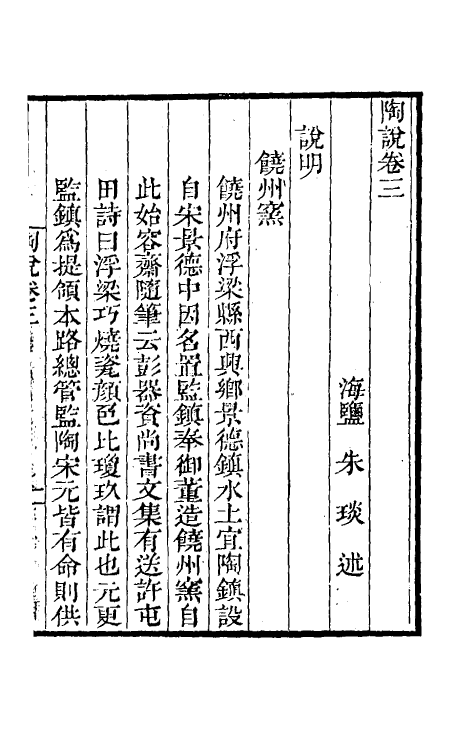 陶說卷三
海鹽 朱琰 述
說明
饒州窯
饒州府浮梁縣西興鄉景德鎮水土宜陶鎮設
自宋景德中因名置監鎮奉御董造饒州窯自
此始容齋隨筆云彭器資尚書文集有送許屯
田詩曰浮梁巧燒瓷顏色比瓊玖謂此也元更
監鎮爲提領本路總管監陶宋元皆有命則供
陶說卷三